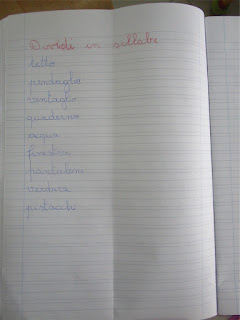 Dividi in sillabe
letto
ventaglio
quaderno
acqua
finestra
pantaloni
verdura
pistacchi